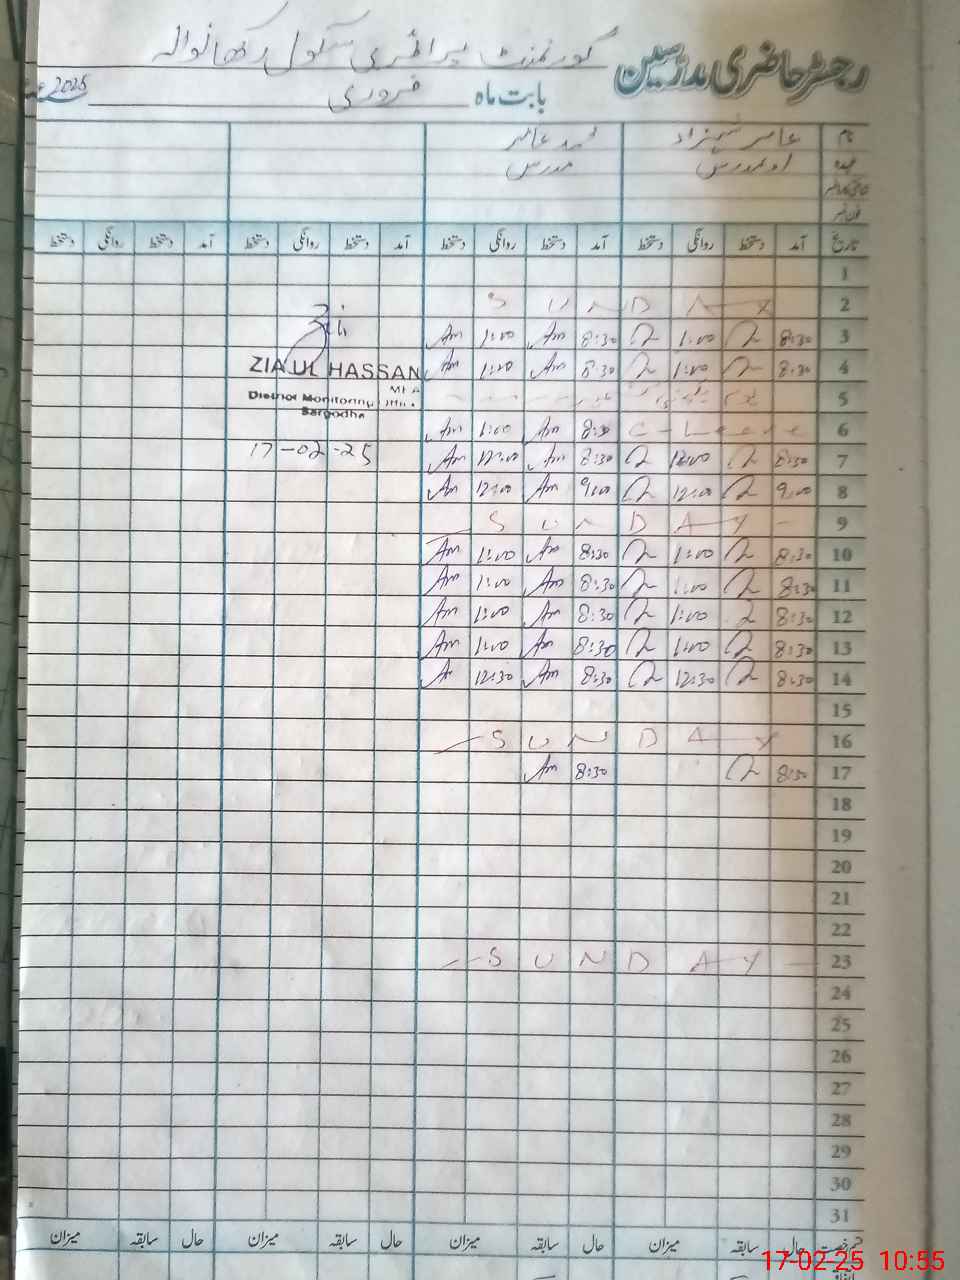 رجسٹر حاضری مدرسین گورنمنٹ پرائمری سکول رکھانوالہ
بابت ماہ فروری 2025
نام عامر شہزاد محمد عامر
عہدہ مدرس
فون نمبر
تاریخ آمد دستخط روانگی دستخط آمد دستخط روانگی دستخط آمد دستخط روانگی دستخط آمد دستخط روانگی دستخط
1
2 SUNDAY
3 8:30 1:00 8:30 Am 1:00 Am
4 8:30 1:00 8:30 Am 1:00 Am
5
6 C-Leave 8:30 Am 1:00 Am
7 8:30 12:00 8:30 Am 12:00 Am
8 9:00 12:00 9:00 Am 12:00 Am
9 SUNDAY
10 8:30 1:00 8:30 Am 1:00 Am
11 8:30 1:00 8:30 Am 1:00 Am
12 8:30 1:00 8:30 Am 1:00 Am
13 8:30 1:00 8:30 Am 1:00 Am
14 8:30 12:30 8:30 Am 12:30 A
15
16 SUNDAY
17 8:30 8:30 Am
18
19
20
21
22
23 SUNDAY
24
25
26
27
28
29
30
31
حال سابقہ میزان حال سابقہ میزان حال سابقہ میزان حال سابقہ میزان
ZIA UL HASSAN
MEA
District Monitoring Office
Sargodha
17-02-25
17-02-25 10:55